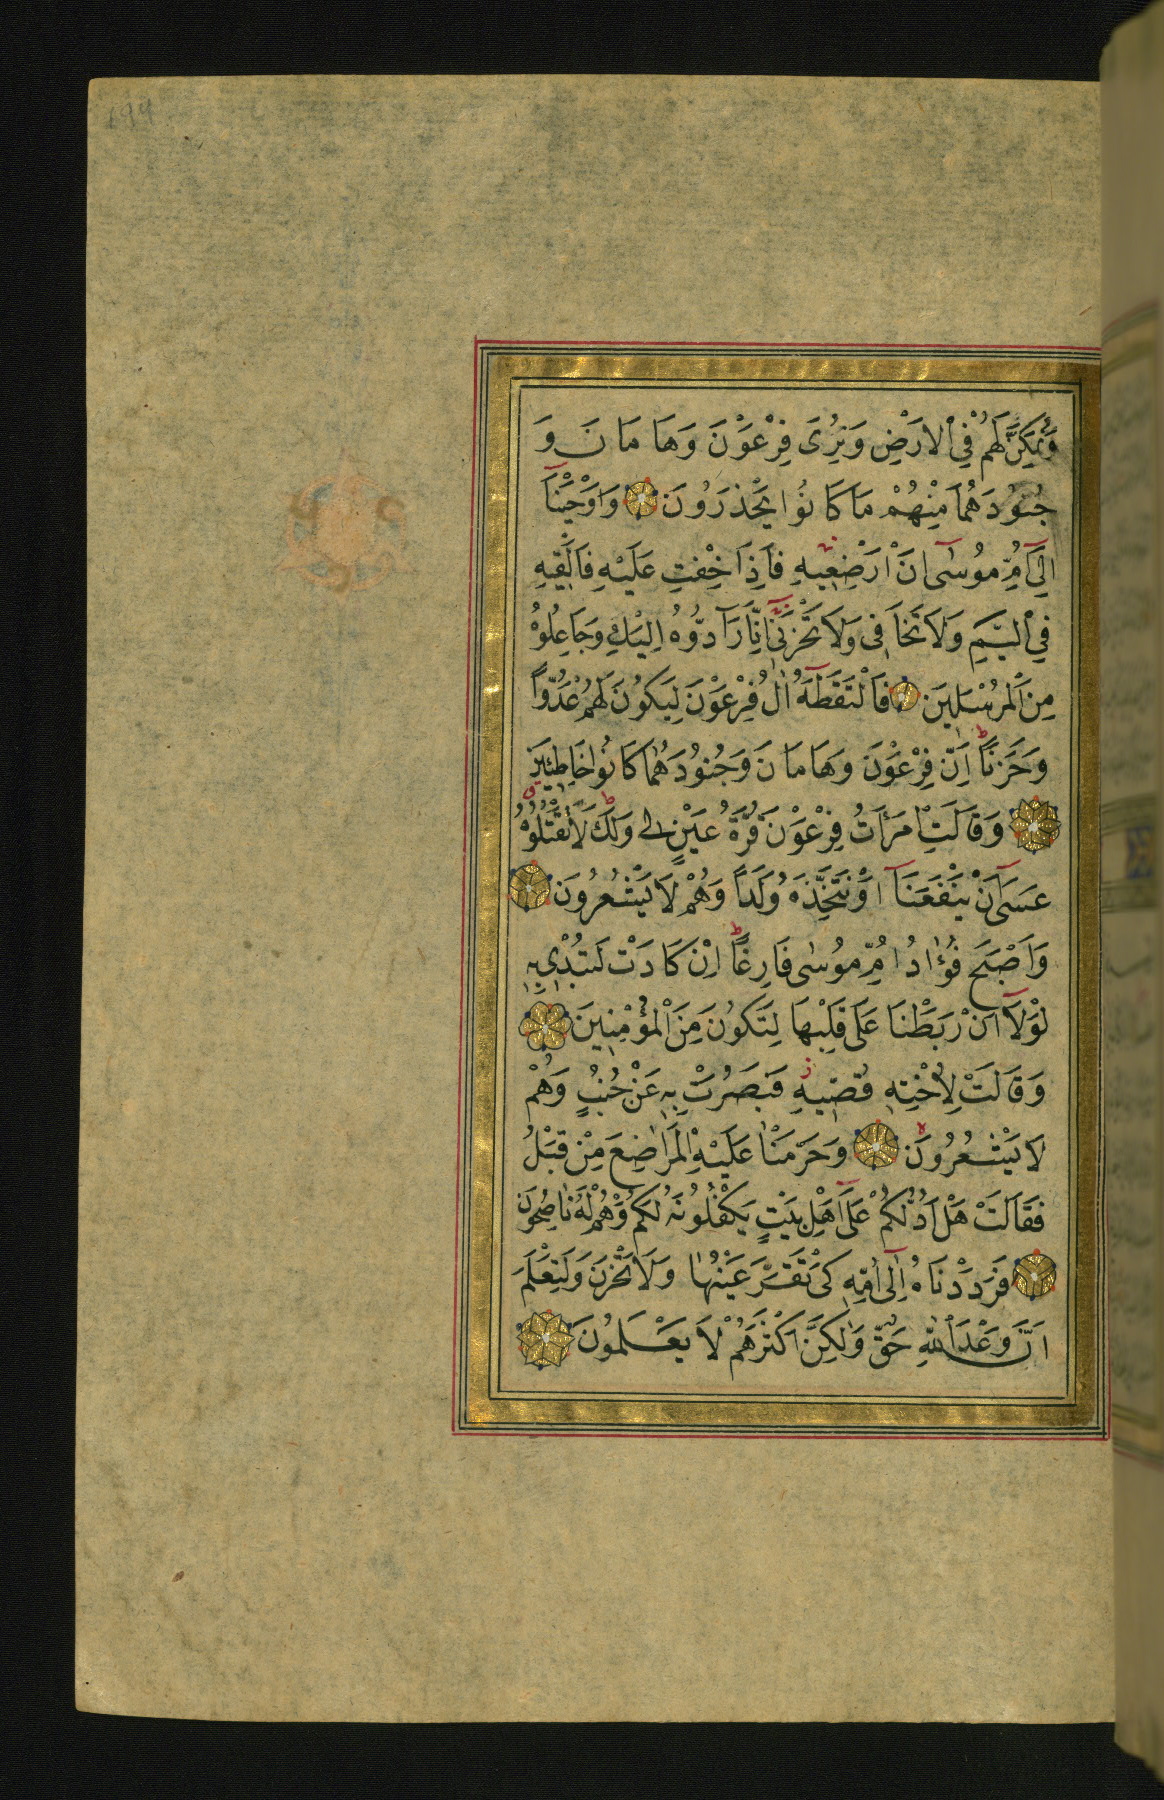 وَنُمَكِّنَ لَهُمْ فِي الْاَرْضِ وَنُرِىَ فِرْعَوْنَ وَهَامَانَ وَ
جُنُودَهُمَا مِنْهُمْ مَا كَانُوا يَحْذَرُونَ وَاَوْحَيْنَآ
اِلَىٓ اُمِّ مُوسٰٓى اَنْ اَرْضِعِيهِ فَاِذَا خِفْتِ عَلَيْهِ فَاَلْقِيهِ
فِي الْيَمِّ وَلَا تَخَافِى وَلَا تَحْزَنِىٓ اِنَّا رَآدُّوهُ اِلَيْكِ وَجَاعِلُوهُ
مِنَ الْمُرْسَلِينَ فَالْتَقَطَهُٓ اٰلُ فِرْعَوْنَ لِيَكُونَ لَهُمْ عَدُوًّا
وَحَزَنًا اِنَّ فِرْعَوْنَ وَهَامَانَ وَجُنُودَهُمَا كَانُوا خَاطِئِينَ
وَقَالَتِ امْرَاَتُ فِرْعَوْنَ قُرَّةُ عَيْنٍ لِى وَلَكَ لَا تَقْتُلُوهُ
عَسٰٓى اَنْ يَنْفَعَنَآ اَوْ نَتَّخِذَهُ وَلَدًا وَهُمْ لَا يَشْعُرُونَ
وَاَصْبَحَ فُؤٰادُ اُمِّ مُوسٰى فَارِغًا اِنْ كَادَتْ لَتُبْدِى بِهِ
لَوْلَآ اَنْ رَبَطْنَا عَلَى قَلْبِهَا لِتَكُونَ مِنَ الْمُؤْمِنِينَ
وَقَالَتْ لِاُخْتِهِ قُصِّيهِ فَبَصُرَتْ بِهِ عَنْ جُنُبٍ وَهُمْ
لَا يَشْعُرُونَ وَحَرَّمْنَا عَلَيْهِ الْمَرَاضِعَ مِنْ قَبْلُ
فَقَالَتْ هَلْ اَدُلُّكُمْ عَلَىٓ اَهْلِ بَيْتٍ يَكْفُلُونَهُ لَكُمْ وَهُمْ لَهُ نَاصِحُونَ
فَرَدَدْنَاهُ اِلٰٓى اُمِّهِ كَىْ تَقَرَّ عَيْنُهَا وَلَا تَحْزَنَ وَلِتَعْلَمَ
اَنَّ وَعْدَ اللهِ حَقٌّ وَلٰكِنَّ اَكْثَرَهُمْ لَا يَعْلَمُونَ